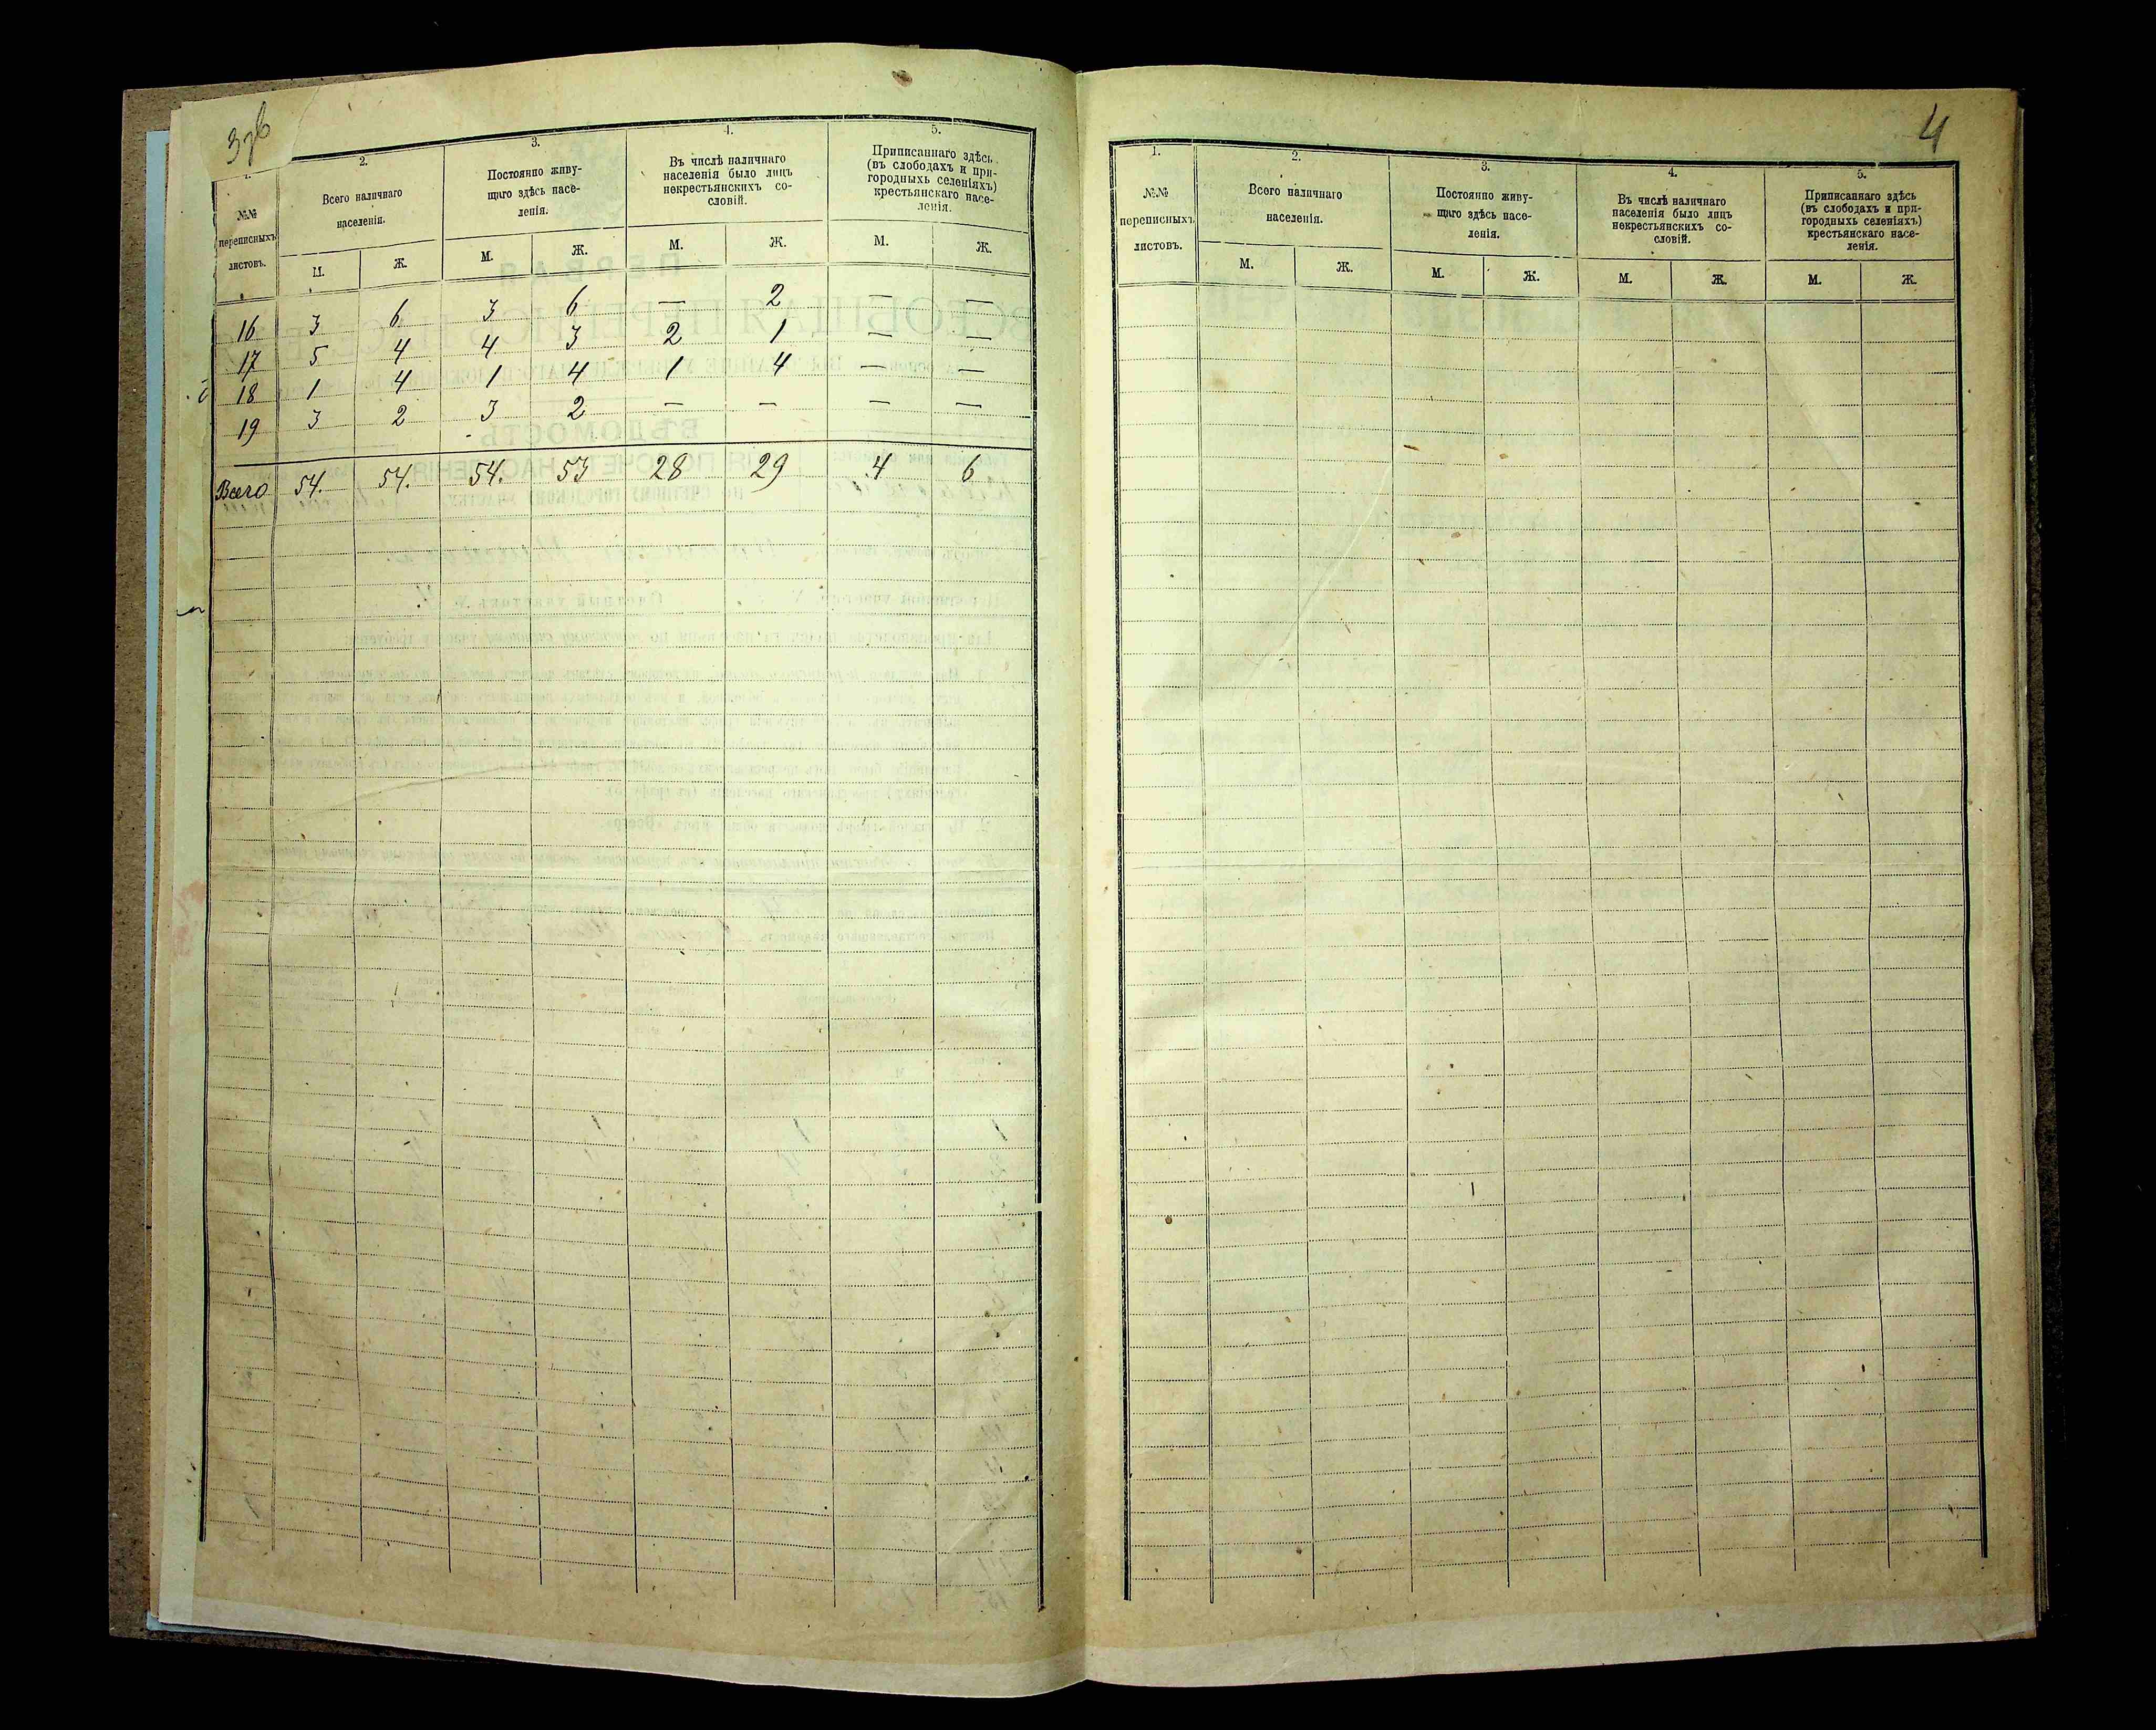 2. 3. 4. 5.
№№ переписныхъ листовъ.
Всего наличнаго
населенія.
Постоянно живу-
щаго здѣсь насе-
ленія.
Въ числѣ наличнаго
населенія было лицъ
некрестьянскихъ со-
словій.
Приписаннаго здѣсь
(въ слободахъ и при-
городныхъ селеніяхъ)
крестьянскаго насе-
ленія.
М. Ж. М. Ж. М. Ж. М. Ж.
16 3 6 3 6 — 2 — —
17 5 4 4 3 2 1 — —
18 1 4 1 4 1 4 — —
19 3 2 3 2 — — — —
Всего 54. 54. 54. 53 28 29 4 6
4
1. 2. 3. 4. 5.
№№
переписныхъ
листовъ.
Всего наличнаго
населенія.
Постоянно живу-
щаго здѣсь насе-
ленія.
Въ числѣ наличнаго
населенія было лицъ
некрестьянскихъ со-
словій.
Приписаннаго здѣсь
(въ слободахъ и при-
городныхъ селеніяхъ)
крестьянскаго насе-
ленія.
М. Ж. М. Ж. М. Ж. М. Ж.